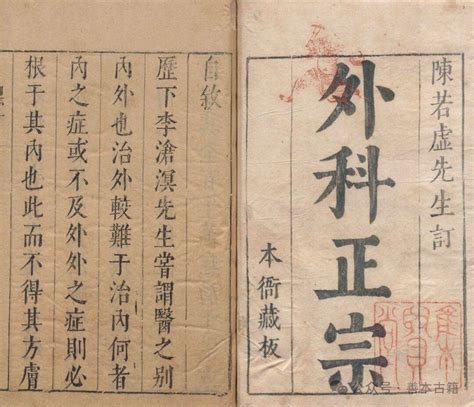 陳若虛先生訂
外科正宗
本衙藏板
自敘
歷下李滄溟先生嘗謂醫之別
內外也治外較難于治內何者
內之症或不及外外之症則必
根于其內也此而不得其方膚
公众号·善本古籍